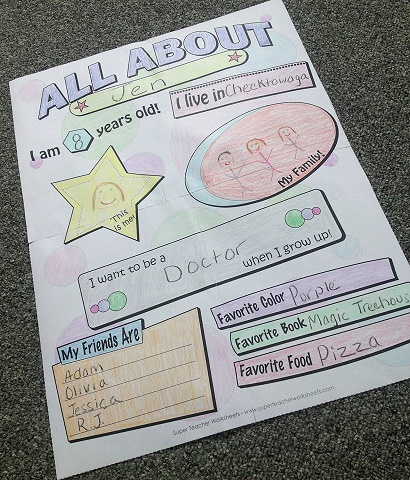 ALL ABOUT
Jen
I am 8 years old!
I live in Cheektowaga
This
is me!
My Family!
I want to be a Doctor when I grow up!
Favorite Color Purple
Favorite Book Magic Treehous
Favorite Food Pizza
My Friends Are
Adam
Olivia
Jessica
R.J.
Super Teacher Worksheets - www.superteacherworksheets.com